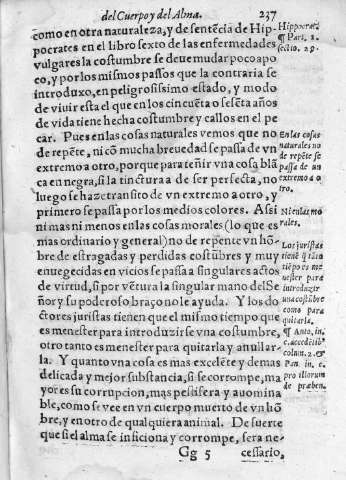 del Cuerpo y del Alma.
237
como en otra naturaleza, y de sentẽcia de Hip-
pocrates en el libro sexto de las enfermedades
vulgares la costumbre se deue mudar poco apo
co, y por los mismos passos que la contraria se
introduxo, en peligrosissimo estado, y modo
de viuir esta el que en los cincuẽta o sesẽta años
de vida tiene hecha costumbre y callos en el pe
car. Pues en las cosas naturales vemos que no
de repẽte, ni cõ mucha breuedad se passa de vn
extremo a otro, porque para teñir vna cosa blã
ca en negra, si la tinctura a de ser perfecta, no
luego se haze transito de vn extremo a otro, y
primero se passa por los medios colores. Assi
ni mas ni menos en las cosas morales (lo que es
mas ordinario y general) no de repente vn hõ-
bre de estragadas y perdidas costũbres y muy
enuegecidas en vicios se passa a singulares actos
de virtud, si por vẽtura la singular mano del Se
ñor y su poderoso braço no le ayuda. Y los do
ctores juristas tienen que el mismo tiempo que
es menester para introduzir se vna costumbre,
otro tanto es menester para quitarla y anullar-
la. Y quanto vna cosa es mas excelẽte y de mas
delicada y mejor substancia, si se corrompe, ma
yor es su corrupcion, mas pestifera y auomina
ble, como se vee en vn cuerpo muerto de vn hõ
bre, y en otro de qualquiera animal. De suerte
que si el alma se inficiona y corrompe, sera ne-
Gg 5
cessario,
Hippocrat.
¶ Pars. 2.
sectio. 29.
En las cosas
naturales no
de repẽte se
passa de vn
extremo a o
tro.
Ni en las mo
rales.
Los juristas
tienẽ q̃ tãto
tiẽpo es me
nester para
introduzir
vna costũbre
como para
quitarla.
¶ Anto. in
c. accedẽtib9
colum. 2. &
Pan. in c.
pro illorum
de præben.